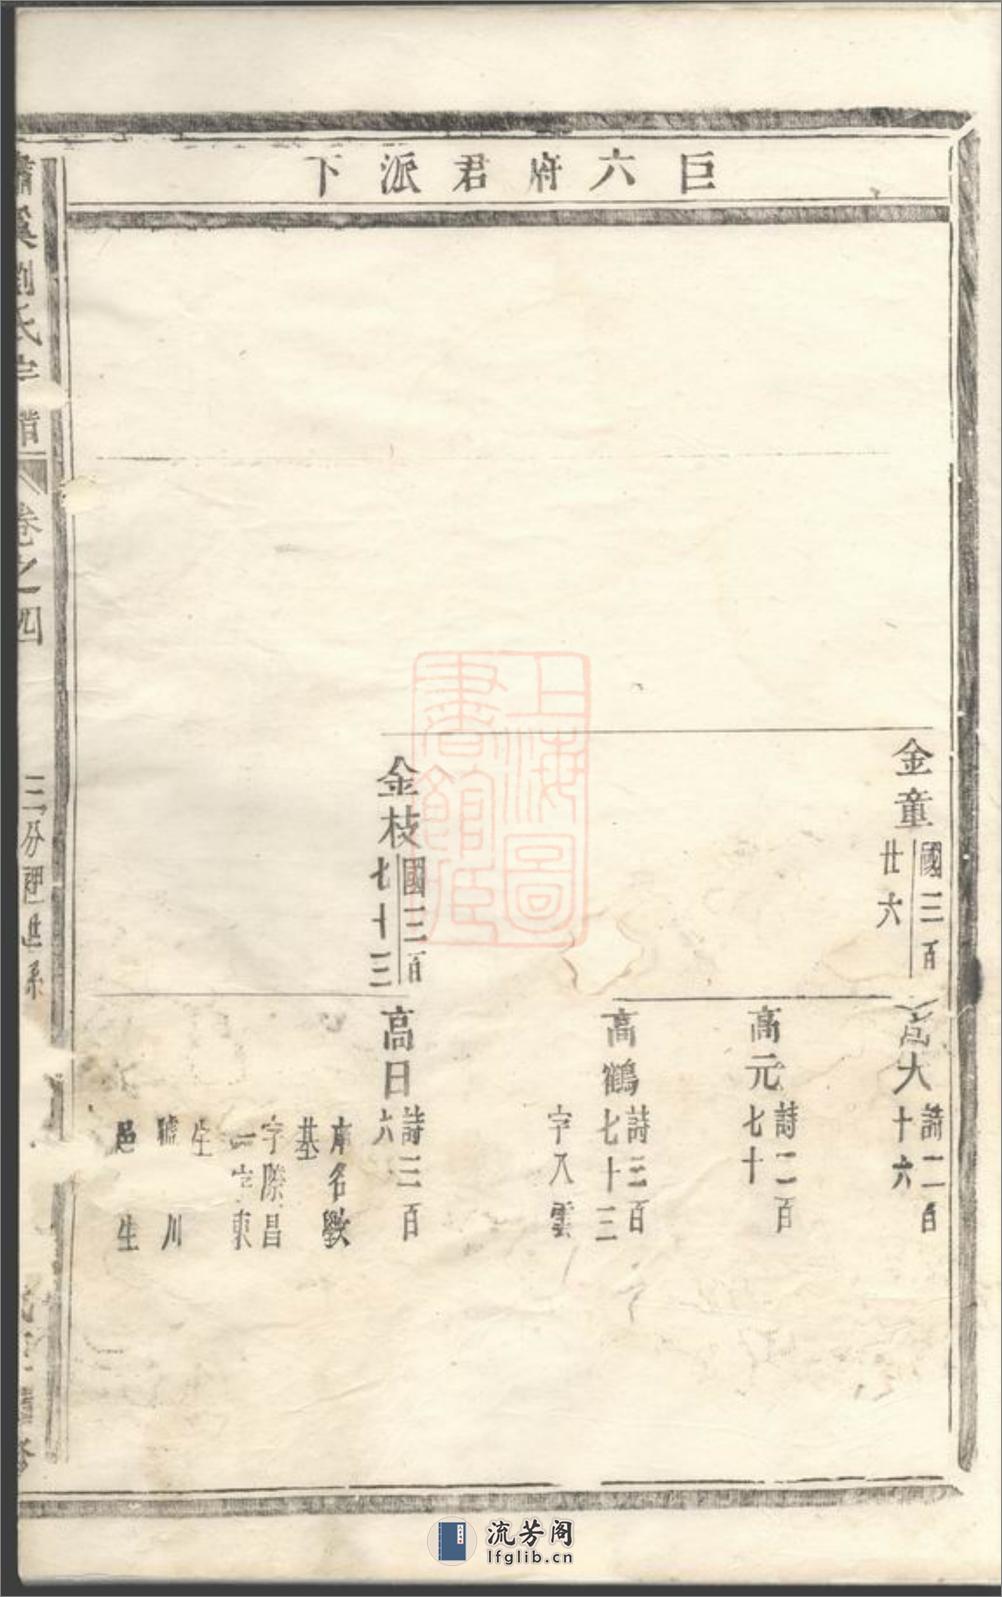 巨六府君派下
金童 國三百廿六
高大 詩二百十六
高元 詩二百七十
高鶴 詩三百七十三
字入雲
金枝 國三百七十三
高日 詩三百六
庠名
基
字際昌
一字東
生
號 川
邑 生
劉氏宗譜
卷之四
上海圖書館臧
流芳阁
lfglib.cn